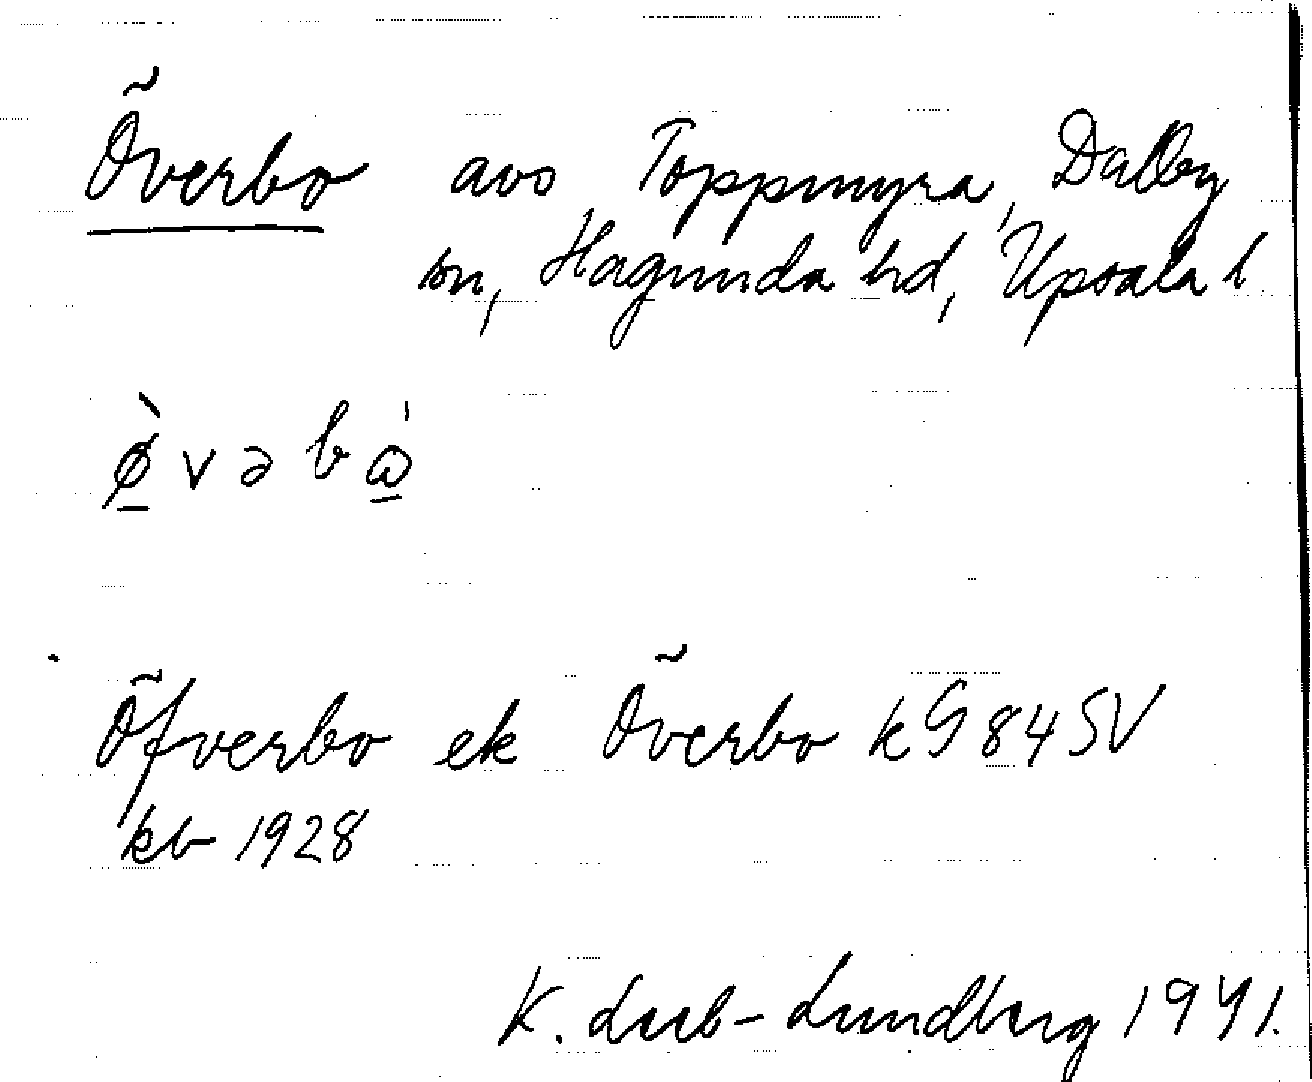 Överbo avs Toppmyra, Dalby
sn, Hagunda hd, Upsala l
ø̀vəbὼ
Öfverbo ek Överbo kG 84 SV
kb 1928
K. Leeb-Lundberg 1941.